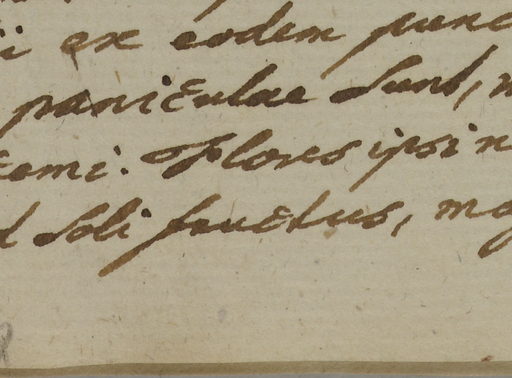 ii ex eodem punc
paniculae sunt, n
temi. Flores ipsi n
d soli fructus, mag